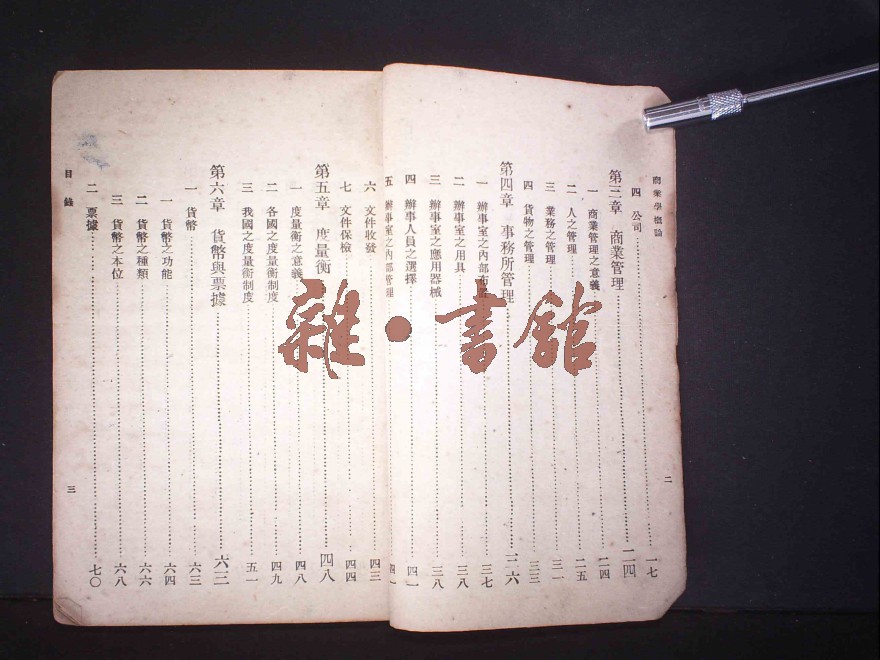 商業學概論
二
四 公司……一七
第三章 商業管理……二四
一 商業管理之意義……二四
二 人之管理……二五
三 業務之管理……三一
四 貨物之管理……三三
第四章 事務所管理……三六
一 辦事室之內部布置……三七
二 辦事室之用具……三八
三 辦事室之應用器械……三八
四 辦事人員之選擇……四一
五 辦事室之內部管理……四二
六 文件收發……四三
七 文件保檢……四四
第五章 度量衡……四八
一 度量衡之意義……四八
二 各國之度量衡制度……四九
三 我國之度量衡制度……五一
第六章 貨幣與票據……六三
一 貨幣……六三
一 貨幣之功能……六四
二 貨幣之種類……六六
三 貨幣之本位……六八
二 票據……七〇
目錄
三
雜•書館